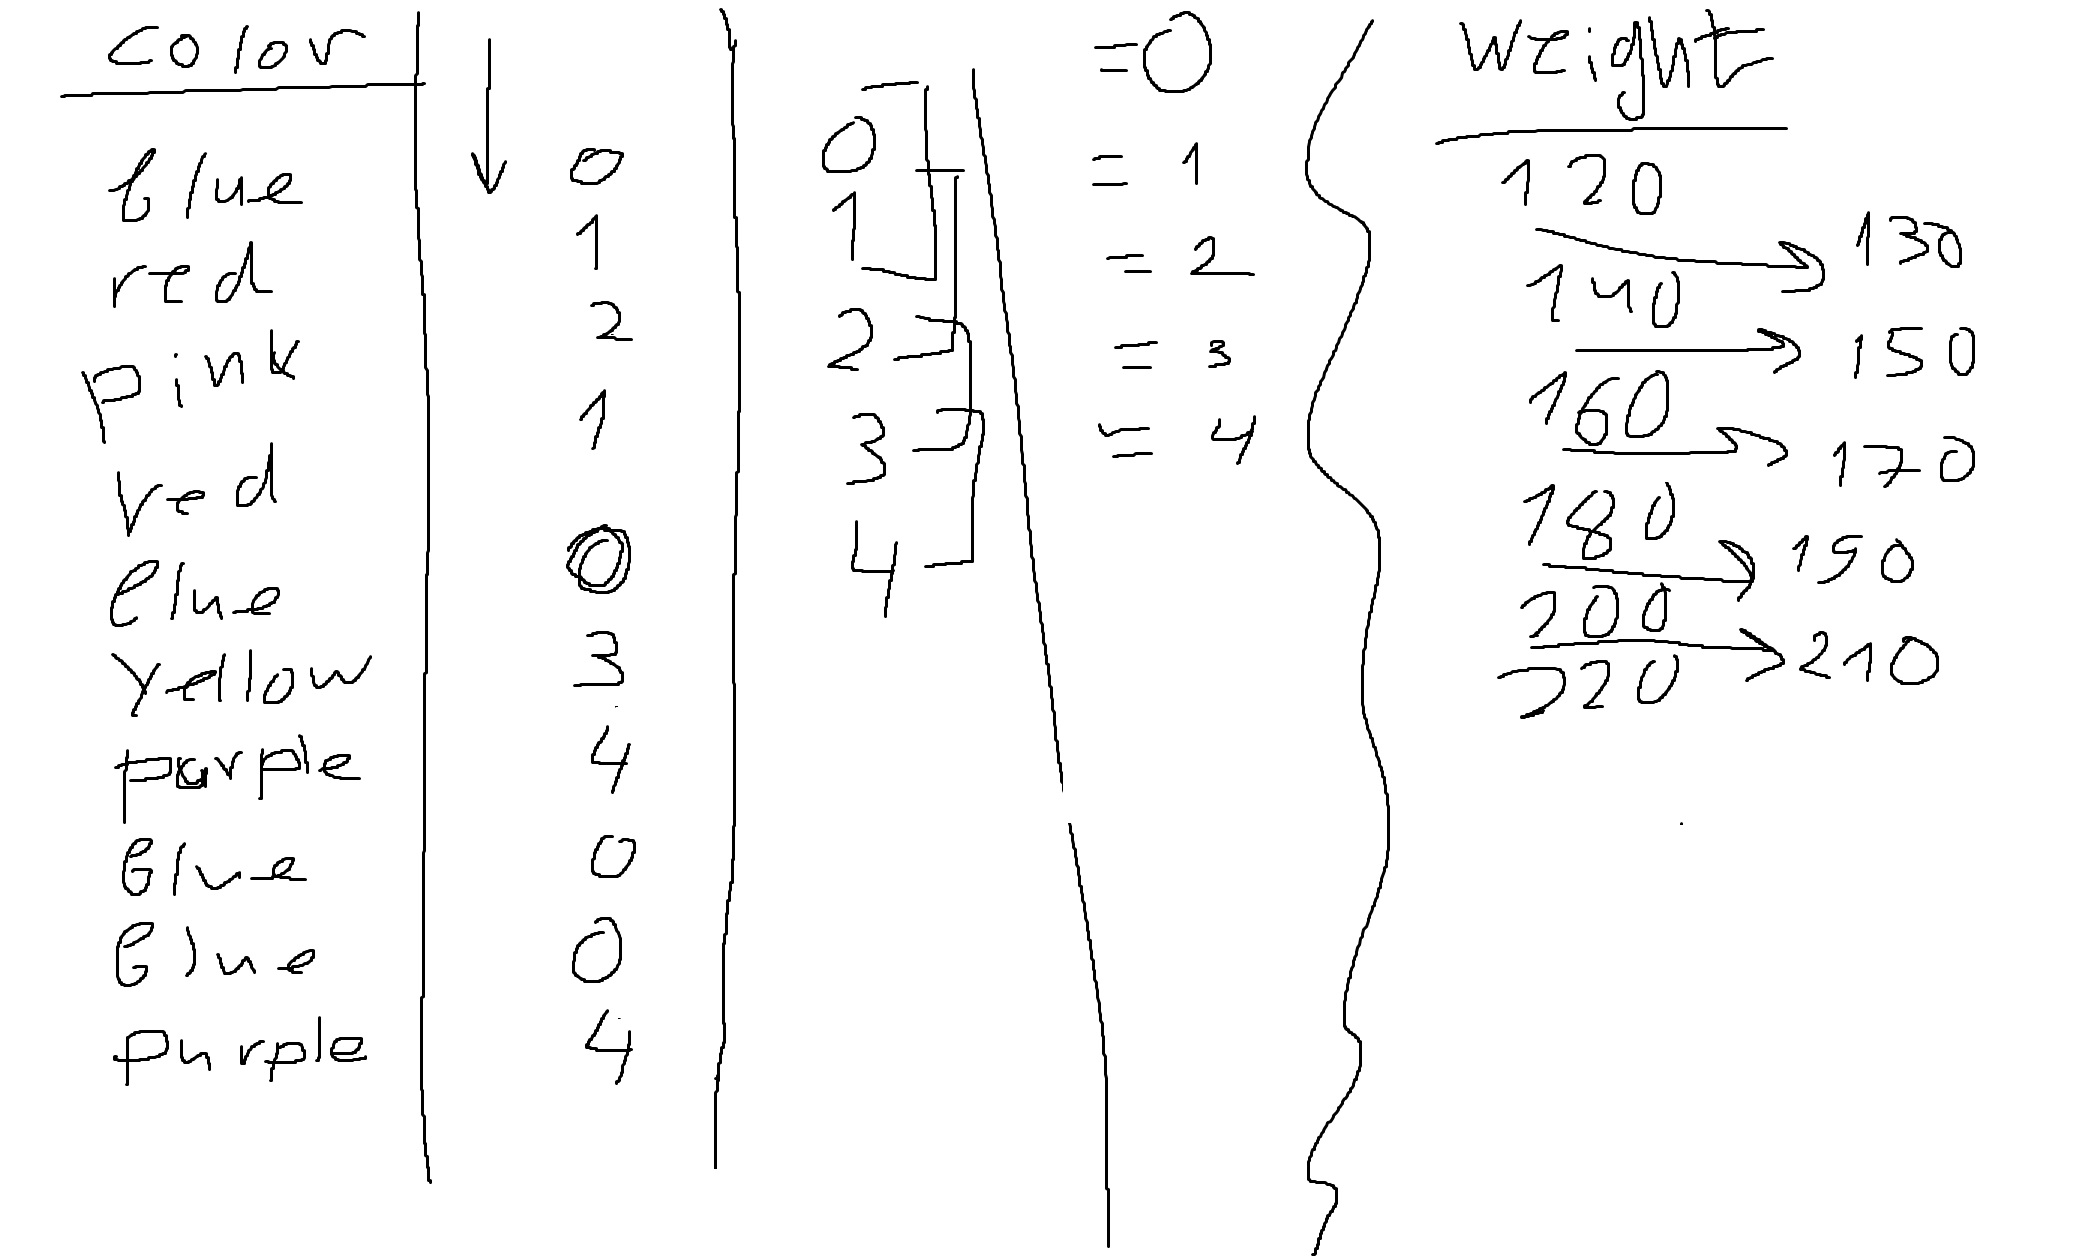 color
blue
red
pink
red
blue
yellow
purple
blue
blue
purple
0
1
2
1
0
3
4
0
0
4
0
1
2
3
4
=0
= 1
= 2
= 3
= 4
weight
120
130
140
150
160
170
180
190
200
210
220